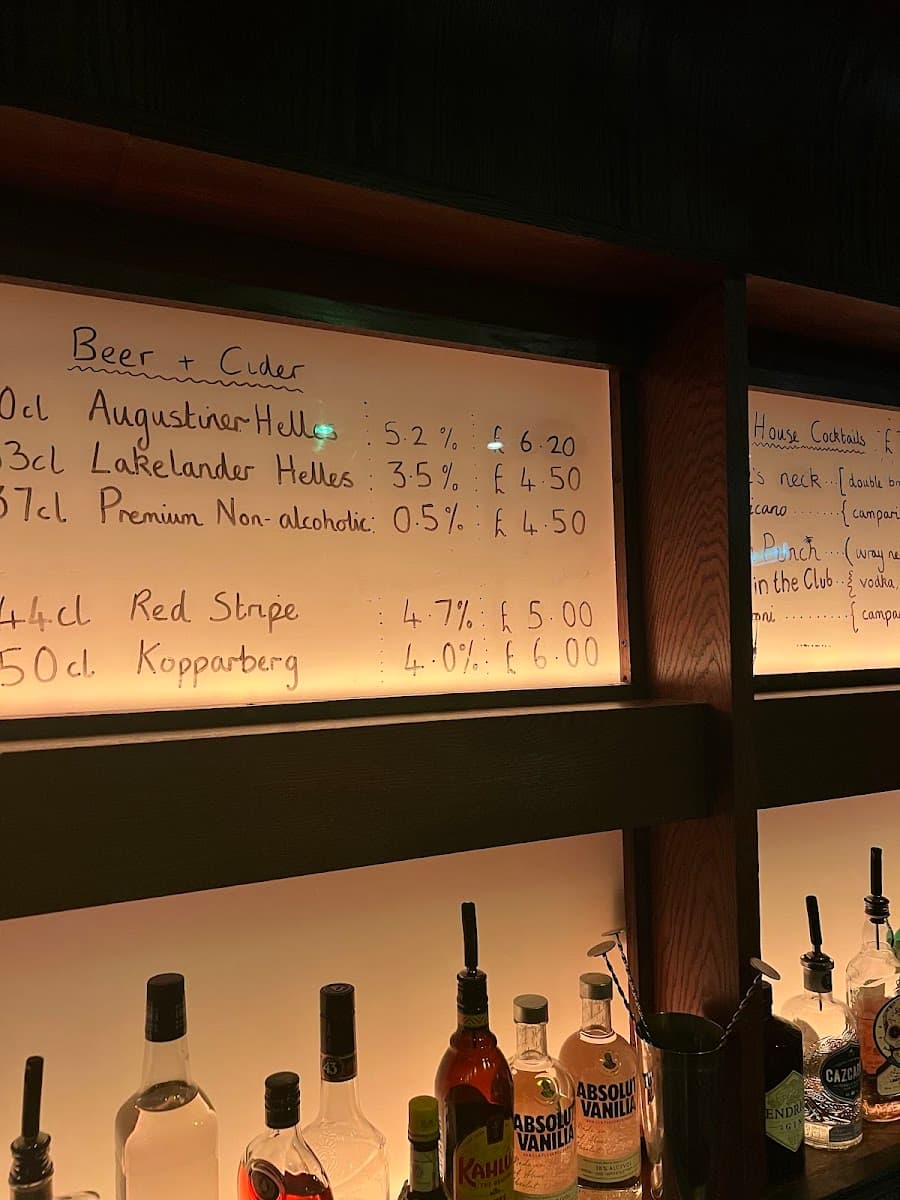 Beer + Cider
0cl Augustiner Helles : 5.2% : £ 6.20
3cl Lakelander Helles : 3.5% : £ 4.50
37cl Premium Non-alcoholic : 0.5% : £ 4.50
44cl Red Stripe : 4.7% : £ 5.00
50cl Kopparberg : 4.0% : £ 6.00
House Cocktails : £
's neck ... [double br
icano ....... { campari
Punch ... (wray ne
in the Club .. { vodka,
oni ........ { campa
43
KAHLÚ
ABSOLUT
VANILIA
ABSOLUT
VANILIA
38% ALCOHOL
ENDRI
GIN
CAZCA